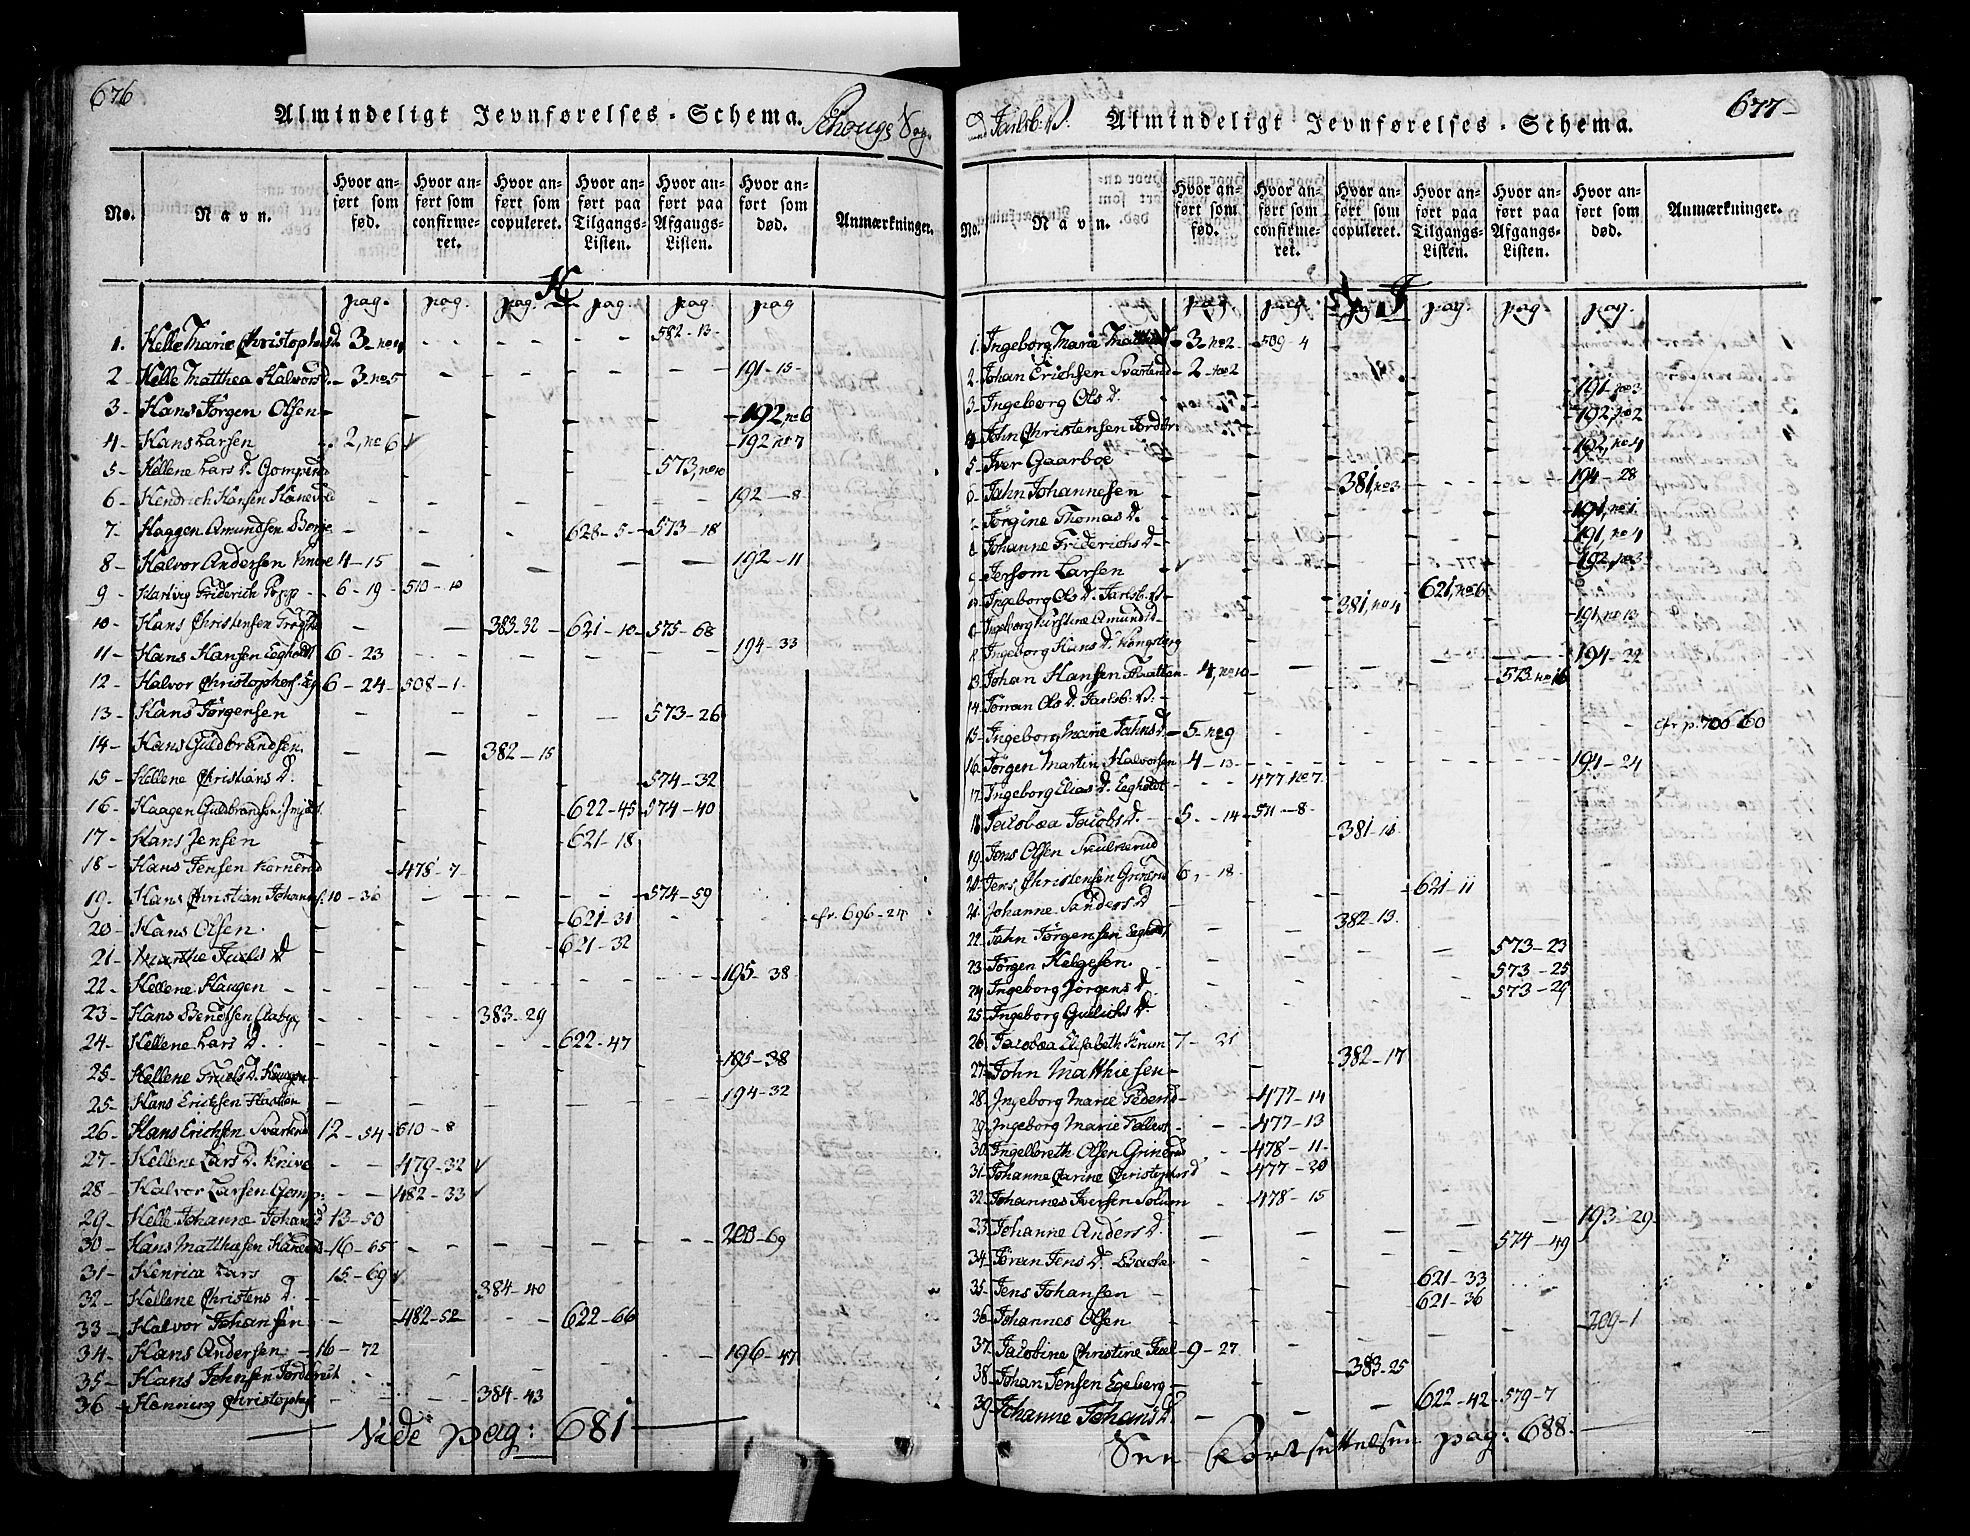 676
Almindeligt Jevnførelses-Schema.
No. Navn. Hvor anført som fød. Hvor anført som confirmeret. Hvor anført som copuleret. Hvor anført paa Tilgangs-Listen. Hvor anført paa Afgangs-Listen. Hvor anført som død. Anmærkninger.
H
pag. pag. pag. pag. pag. pag
1. Helle Marie Christophers D. 3 - no 4 582 - 13
2 - Helle Matthea Halvors D. - 3 no 5 191 - 15
3 - Hans Jörgen Olsen 192 no 6
4 - Hans Larsen 2, no 6 192 no 7
5 - Hellene Lars D. 573, no 10
6 - Hendrich Hansen 192 - 8
7 - Haagen Amundsen Berge 628 - 5 - 573 - 18
8 - Halvor Andersen Knive 4 - 15 192 - 11
9 - Hartvig Friderich Popp 6 - 19 510 - 10
10 - Hans Christensen 383 - 32 621 - 10 - 575 - 68
11 - Hans Hansen Eegholdt 6 - 23 194 - 33
12 - Halvor Christophers. Eg 6 - 24 - 508 - 1
13 - Hans Jörgensen 573 - 26
14 - Hans Guldbrandsen 382 - 15
15 - Hellene Christians D. 574 - 32
16 - Haagen Guldbrandsen 622 - 45 574 - 40
17 - Hans Jensen 621 - 18
18 - Hans Jensen Kornerud 475 - 7
19 - Hans Christian Johannes. 10 - 30 574 - 59
20 - Hans Olsen 621 - 31 cfr. 696 - 24
21 - Marthe Juels D 621 - 32
22 - Hellene Haugen 195 - 38
23 - Hans Bendtsen Aaby 383 - 29
24 - Hellene Lars D. 622 - 47
25 - Hellene Truels D. Haugen 195 - 38
25 - Hans Erichsen 194 - 32
26 - Hans Erichsen Svarterud 12 - 54 510 - 8
27 - Hellene Lars D. Knive 479 - 32
28 - Halvor Larsen Gomp. 482 - 33
29 - Helle Johanne Johans D 13 - 50
30 - Hans Matthiesen 16 - 65 200 - 69
31 - Henrica Lars 15 - 69
32 - Hellene Christens D. 384 - 40
33 - Halvor Johansen 482 - 52 622 - 66
34 - Hans Andersen 16 - 72 196 - 47
35 - Hans Johnsen
36 - Henning Christophers 384 - 43
Vide pag: 681
Jarlsb. V.
Almindeligt Jevnførelses-Schema.
677
No. Navn. Hvor anført som fød. Hvor anført som confirmeret. Hvor anført som copuleret. Hvor anført paa Tilgangs-Listen. Hvor anført paa Afgangs-Listen. Hvor anført som død. Anmærkninger.
J
pag. pag. pag. pag. pag. pag.
1. Ingeborg Marie 3 - no 2 - 509 - 4
2. Johan Erichsen Svarterud 2 - no 2
3 - Ingeborg Ols D. 191 no 3
4 John Christensen 192, no 2
5 - Iver Gaarboe 192, no 4
6 - Jahn Johannesen 381, no 3 194 - 28
7 - Jørgine Thomas D. 191, no 1
8 - Johanne Friderichs D 191, no 4
9 - Jersom Larsen 192, no 3
10 - Ingeborg Ols D. Jarlsb. V. 621, no 6
Ingeborg Kirstine Amunds D 381, no 4
Ingeborg Hans D. Kongsberg 191, no 13
13 - Johan Hansen 4, no 10 573 no 16 194 - 22
14 - Joran Ols D. Jarlsb. V.
15 - Ingeborg Marie Jahns D. - 5 - no 9 cfr p. 700 60
16. Jörgen Martin Halvorsen 4 - 13 194 - 24
17. Ingeborg Elias D. Eegholdt 477 no 7
18 Jacobæa Jacobs D. 5 - 14 - 511 - 8
19. Jens Olsen 381 - 18
20 - Jens Christensen Grinerud 6 - 18
21. Johanne Sanders D 621 - 11
22. Jahn Jörgensen Eegholdt 382 - 13
23 - Jörgen Helgesen 573 - 23
24 Ingeborg Jörgens D 573 - 25
25. Ingeborg Gulichs D. 573 - 29
26. Jacobæa Elisabeth Krum 7 - 21
27. John Matthiesen 382 - 17
28. Ingeborg Marie Peders D 477 - 14
29. Ingeborg Marie 477 - 13
30. Ingelbreth Olsen Grinerud 478 - 11
31. Johanne Carine Christophers D 477 - 20
32. Johannes Iversen Solum 478 - 15
33. Johanne Anders D. 193 - 29
34. Joran Jens D. Backe 574 - 49
35. Jens Johansen 621 - 33
36. Johannes Olsen 621 - 36 209 - 1
37. Jacobine Christine Juel 9 - 27
38. Johan Jensen Egeberg 383 - 25
39. Johanne Johans D. 622 - 42 579 - 7
See Fortsettelsen pag: 688.